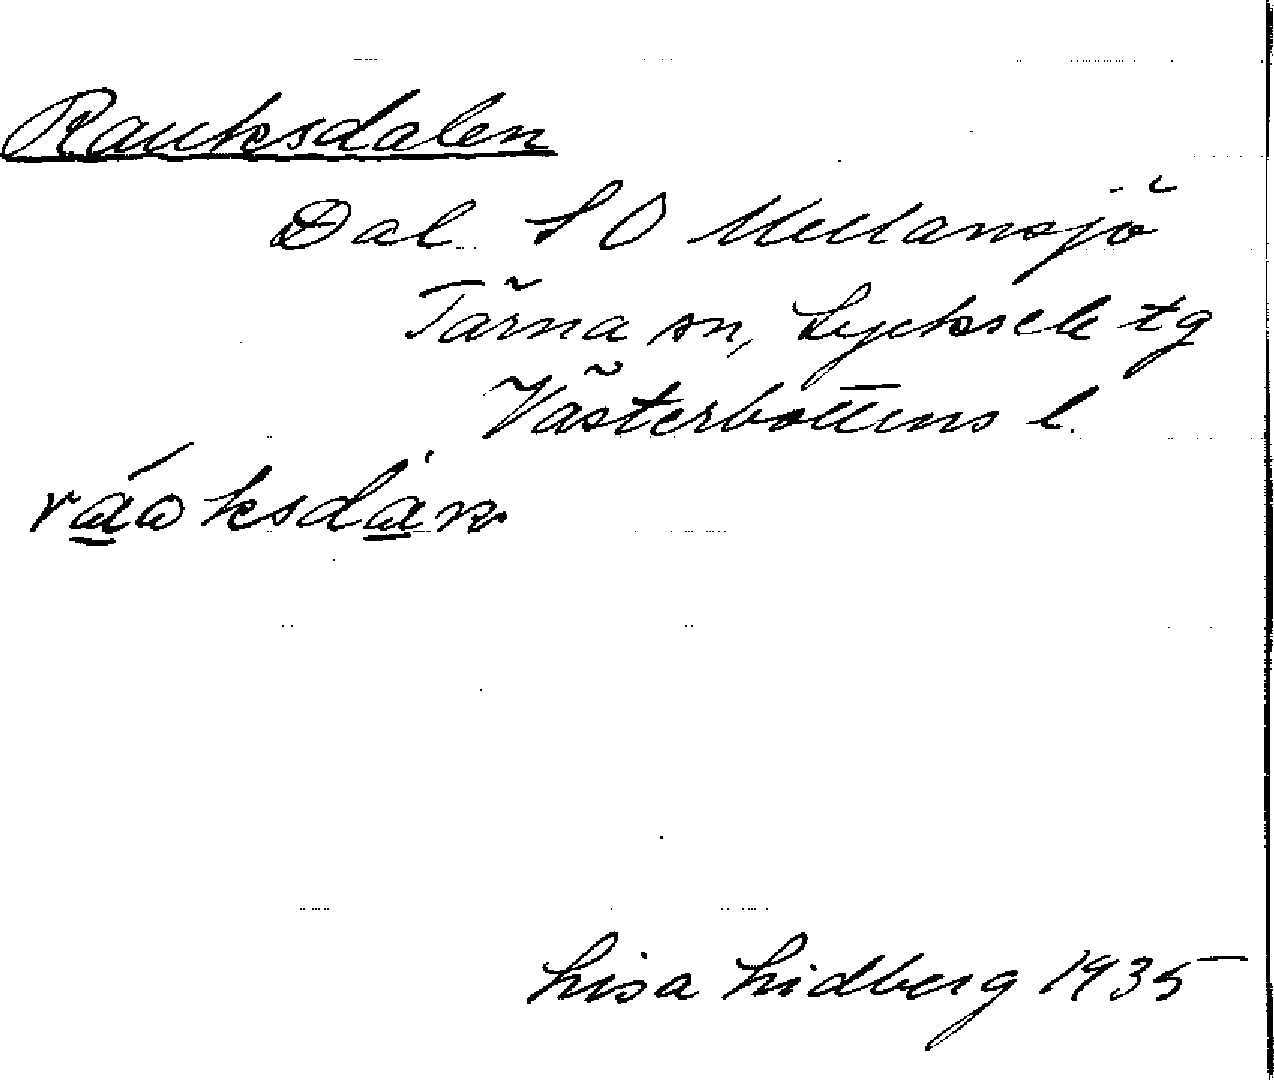 Rauksdalen
Dal SO Mellansjö
Tärna sn, Lycksele tg
Västerbottens l.
Lisa Lidberg 1935